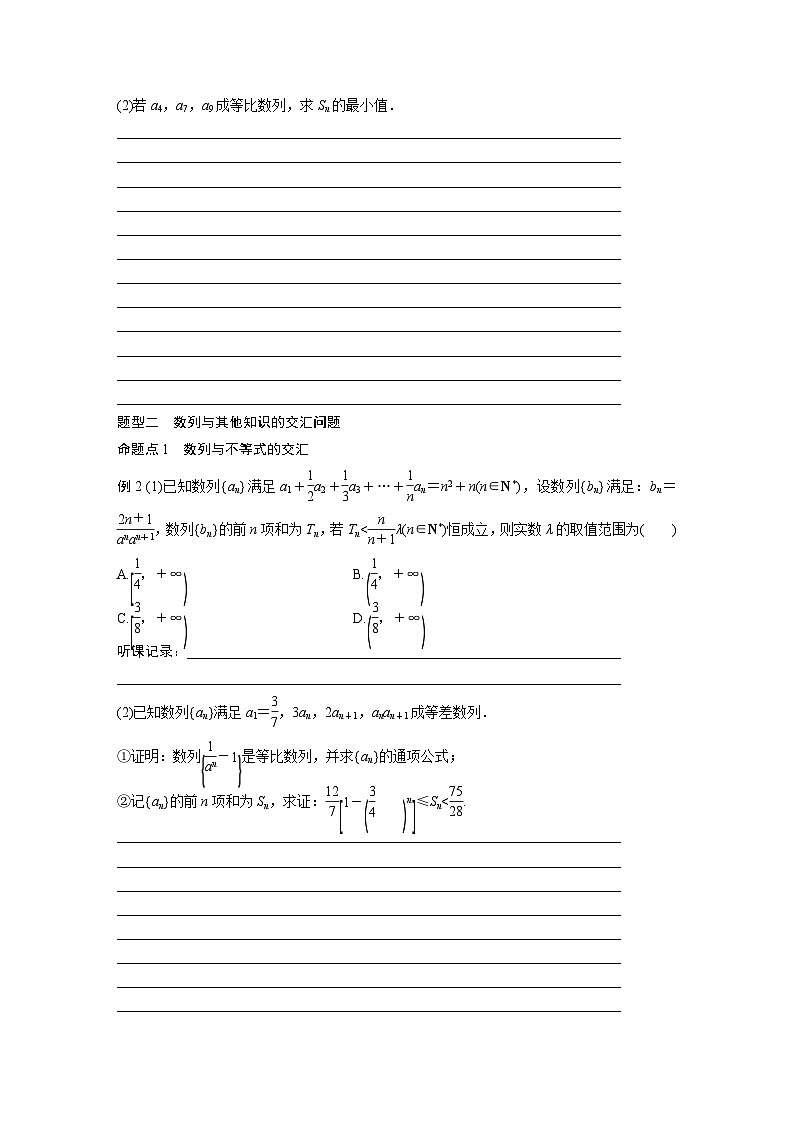 (2)若a₄，a₇，a₉成等比数列，求Sₙ的最小值．
题型二　数列与其他知识的交汇问题
命题点1　数列与不等式的交汇
例2 (1)已知数列{aₙ}满足a₁＋1/2a₂＋1/3a₃＋…＋1/naₙ＝n²＋n(n∈N*)，设数列{bₙ}满足：bₙ＝
(2n＋1)/(aₙaₙ₊₁)，数列{bₙ}的前n项和为Tₙ，若Tₙ<n/(n＋1)λ(n∈N*)恒成立，则实数λ的取值范围为(　　)
A.[1/4，＋∞)　B.(1/4，＋∞)
C.[3/8，＋∞)　D.(3/8，＋∞)
听课记录：
(2)已知数列{aₙ}满足a₁＝3/7，3aₙ，2aₙ₊₁，aₙaₙ₊₁成等差数列．
①证明：数列{1/aₙ－1}是等比数列，并求{aₙ}的通项公式；
②记{aₙ}的前n项和为Sₙ，求证：12/7[1－(3/4)ⁿ]≤Sₙ<75/28.